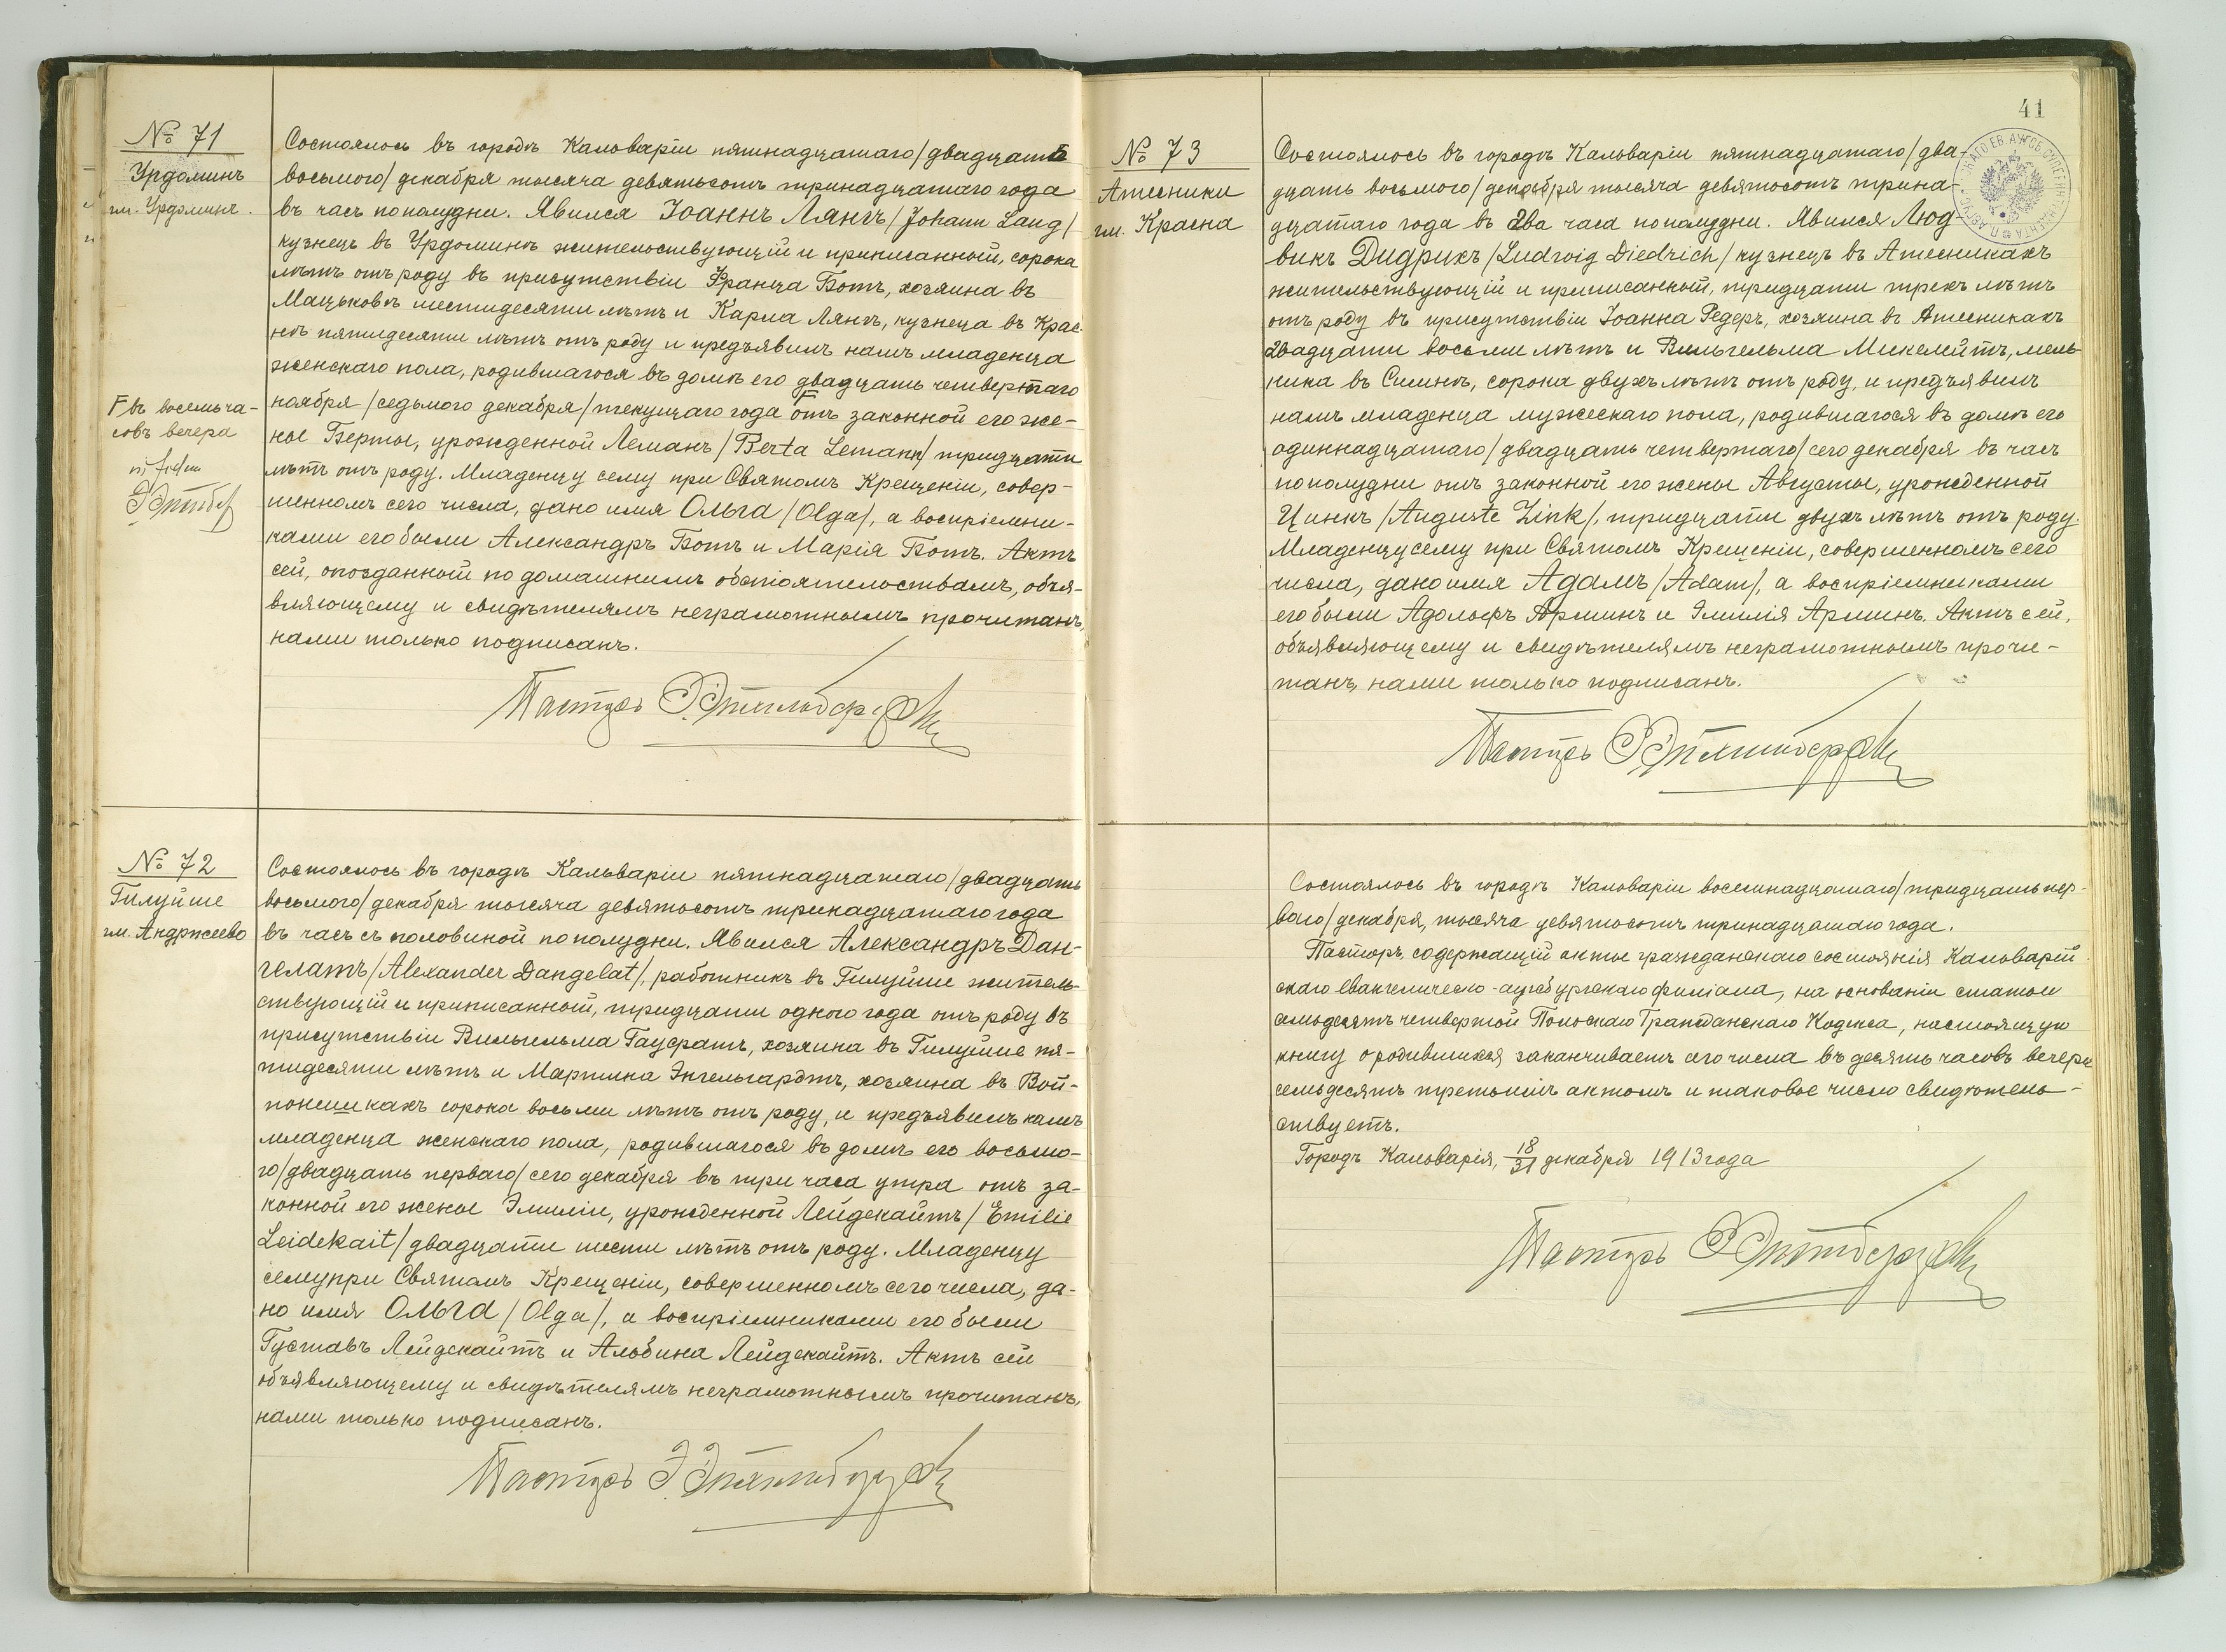 № 71
Урдоминъ
гм. Урдоминъ.
Состоялось въ городѣ Кальваріи пятнадцатаго/двадцать
восьмого/ декабря тысяча девятьсотъ тринадцатаго года
въ часъ пополудни. Явился Іоаннъ Лянгъ /Johann Lang/
кузнецъ въ Урдоминѣ жительствующій и приписанный, сорока
лѣтъ отъ роду въ присутствіи Франца Ботъ, хозяина въ
Мацьковѣ шестидесяти лѣтъ и Карла Лянгъ, кузнеца въ Крас-
нѣ пятидесяти лѣтъ отъ роду и предъявилъ намъ младенца
женскаго пола, родившагося въ домѣ его двадцать четвертаго
ноября /седьмого декабря/ текущаго года Г отъ законной его же-
ны Берты, урожденной Леманъ /Berta Lemann/ тридцати
лѣтъ отъ роду. Младенцу сему при Святомъ Крещеніи, совер-
шенномъ сего числа, дано имя Ольга /Olga/, а воспріемни-
ками его были Александръ Ботъ и Марія Ботъ. Актъ
сей, опозданный по домашнимъ обстоятельствамъ, объя-
вляющему и свидѣтелямъ неграмотнымъ прочитанъ,
нами только подписанъ.
Г въ восемь ча-
совъ вечера
Пасторъ
№ 72
Гилуйше
гм. Андржеево
Состоялось въ городѣ Кальваріи пятнадцатаго/двадцать
восьмого/ декабря тысяча девятьсотъ тринадцатаго года
въ часъ съ половиной пополудни. Явился Александръ Дан-
гелатъ /Alexander Dangelat/, работникъ въ Гилуйше житель-
ствующій и приписанный, тридцати одного года отъ роду въ
присутствіи Вильгельма Гауфратъ, хозяина въ Гилуйше пя-
тидесяти лѣтъ и Мартина Энгельгардтъ, хозяина въ Вой-
понишкахъ сорока восьми лѣтъ отъ роду, и предъявилъ намъ
младенца женскаго пола, родившагося въ домѣ его восьмо-
го/двадцать перваго/ сего декабря въ три часа утра отъ за-
конной его жены Эмиліи, урожденной Лейдекайтъ /Emilie
Leidekait/ двадцати шести лѣтъ отъ роду. Младенцу
сему при Святомъ Крещеніи, совершенномъ сего числа, да-
но имя Ольга /Olga/, а воспріемниками его были
Густавъ Лейдекайтъ и Альбина Лейдекайтъ. Актъ сей
объявляющему и свидѣтелямъ неграмотнымъ прочитанъ,
нами только подписанъ.
Пасторъ
41
№ 73
Атесники
гм. Красна
Состоялось въ городѣ Кальваріи пятнадцатаго/два-
дцать восьмого/ декабря тысяча девятьсотъ трина-
дцатаго года въ два часа пополудни. Явился Люд-
викъ Дидрихъ /Ludwig Diedrich/ кузнецъ въ Атесникахъ
жительствующій и приписанный, тридцати трехъ лѣтъ
отъ роду въ присутствіи Іоанна Редеръ, хозяина въ Атесникахъ
двадцати восьми лѣтъ и Вильгельма Микелейтъ, мель-
ника въ Симнѣ, сорока двухъ лѣтъ отъ роду, и предъявилъ
намъ младенца мужескаго пола, родившагося въ домѣ его
одиннадцатаго/двадцать четвертаго/ сего декабря въ часъ
пополудни отъ законной его жены Августы, урожденной
Цинкъ /Auguste Zink/, тридцати двухъ лѣтъ отъ роду.
Младенцу сему при Святомъ Крещеніи, совершенномъ сего
числа, дано имя Адамъ /Adam/, а воспріемниками
его были Адольфъ Арминъ и Эмилія Арминъ. Актъ сей,
объявляющему и свидѣтелямъ неграмотнымъ прочи-
танъ, нами только подписанъ.
Пасторъ
Состоялось въ городѣ Кальваріи восемнадцатаго/тридцать пер-
ваго/ декабря, тысяча девятьсотъ тринадцатаго года.
Пасторъ, содержащій акты гражданскаго состоянія Кальварій-
скаго евангелическо-аугсбургскаго филіала, на основаніи статьи
семьдесятъ четвертой Польскаго Гражданскаго Кодекса, настоящую
книгу о родившихся заканчиваетъ сего числа въ десять часовъ вечера
семьдесятъ третьимъ актомъ и таковое число свидѣтель-
ствуетъ.
Городъ Кальварія, 18/31 декабря 1913 года
Пасторъ